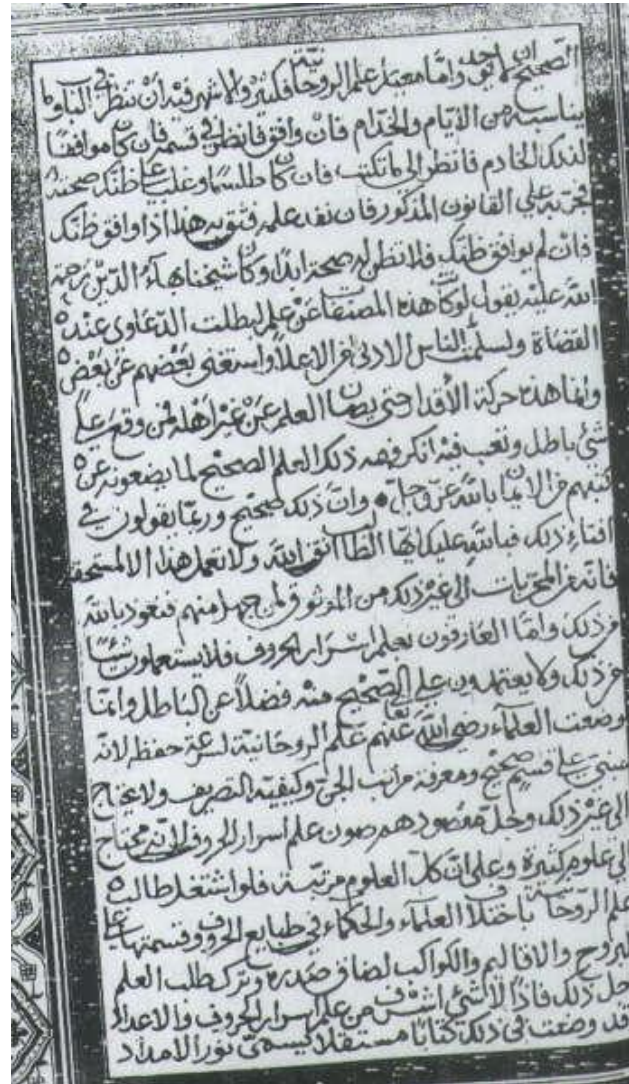 الصحيح ان لا يوجد واما معيار علم الروحانية فكثيرة والاشهر فيه أن تنظر في الباب وما
يناسبه من الايام والخدام فان وافق فانظر في قسمه فان كان موافقا
لذلك الخادم فانظر الى ما تكتب فان كان طلسما وغلب على ظنك صحته
فجربه على القانون المذكور فان نفد علمه فثق به هذا اذا وافق ظنك
فان لم يوافق ظنك فلا تظن له صحة ابدا وكان شيخنا بهاء الدين رحمة
الله عليه يقول لو كانت هذه المصنفات عن علم لبطلت الدعاوى عند
القضاة ولسلمت الناس الادنى من الاعلا واستغنى بعضهم عن بعض
وانما هذه حركة الأقدام حتى يصان العلم عن غير أهله فمن وقع على
شئ باطل وتعب فيه انكر فهمه ذلك العلم الصحيح لما يضعونه عن
كتبهم من الايمان بالله عز وجل وان ذلك صحيح وربما يقولون في
افتاء ذلك فبالله عليك ايها الطالب اتق الله ولا تعمل هذا الا لمستحقه
فانه من المجربات الى غير ذلك من الموثوق لمن جهل منهم فنعوذ بالله
من ذلك واما العارفون بعلم اسرار الحروف فلا يستعملون شيئا
من ذلك ولا يعتمدون على الصحيح منه فضلا عن الباطل وانما
وضعت العلماء رضي الله عنهم علم الروحانية لسرعة حفظه لانه
مبني على قسم صحيح ومعرفة مراتب الجن وكيفية التصريف ولا يحتاج
الى غير ذلك وجل مقصودهم صون علم اسرار الحروف لانه محتاج
الى علوم كثيرة وعلى ان كل العلوم مرتبة فلو اشتغل طالب
علم الروحانية باختلاف العلماء والحكماء في طبايع الحروف وقسمتها على
البروج والاقاليم والكواكب لضاق صدره وترك طلب العلم
جل ذلك فاذا لا شئ اشرف من علم اسرار الحروف والاعداد
قد وضعت في ذلك كتابا مستقلا يسمى نور الامداد